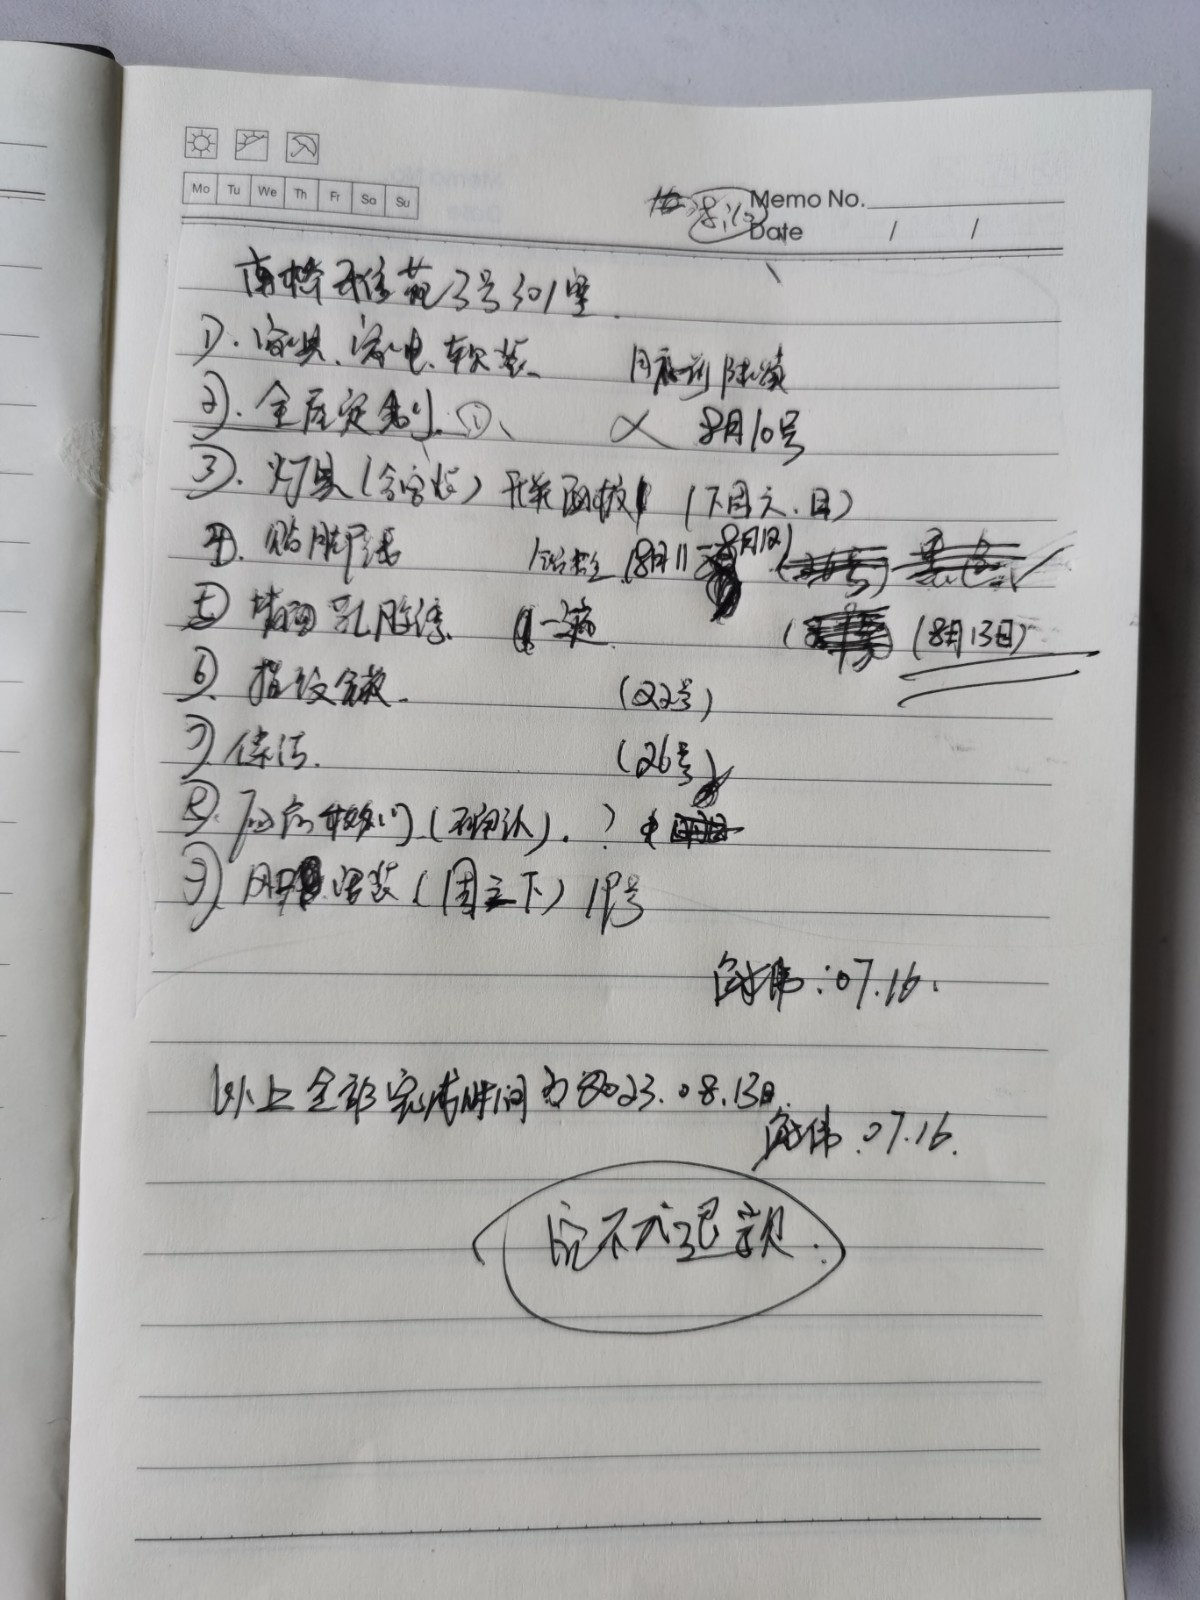 Mo Tu We Th Fr Sa Su
Memo No.
Date / /
南桥雅苑3号301室.
1). 家具、家电、软装、 月底前陆续
2). 全屋定制. ①、 8月10号
3). 灯具(含安装) 开关面板 (下周六.日)
4). 贴脚线 8月11-8月12)
5) 墙面乳胶漆 一遍. (8月13日)
6). 指纹锁. (22号)
7) 保洁. (26号)
8). 厨房移门(确认). ?
9) 安装(周三下) 19号
伟:07.16.
以上全部完成时间为2023.08.13日.
伟.07.16.
定不退款.